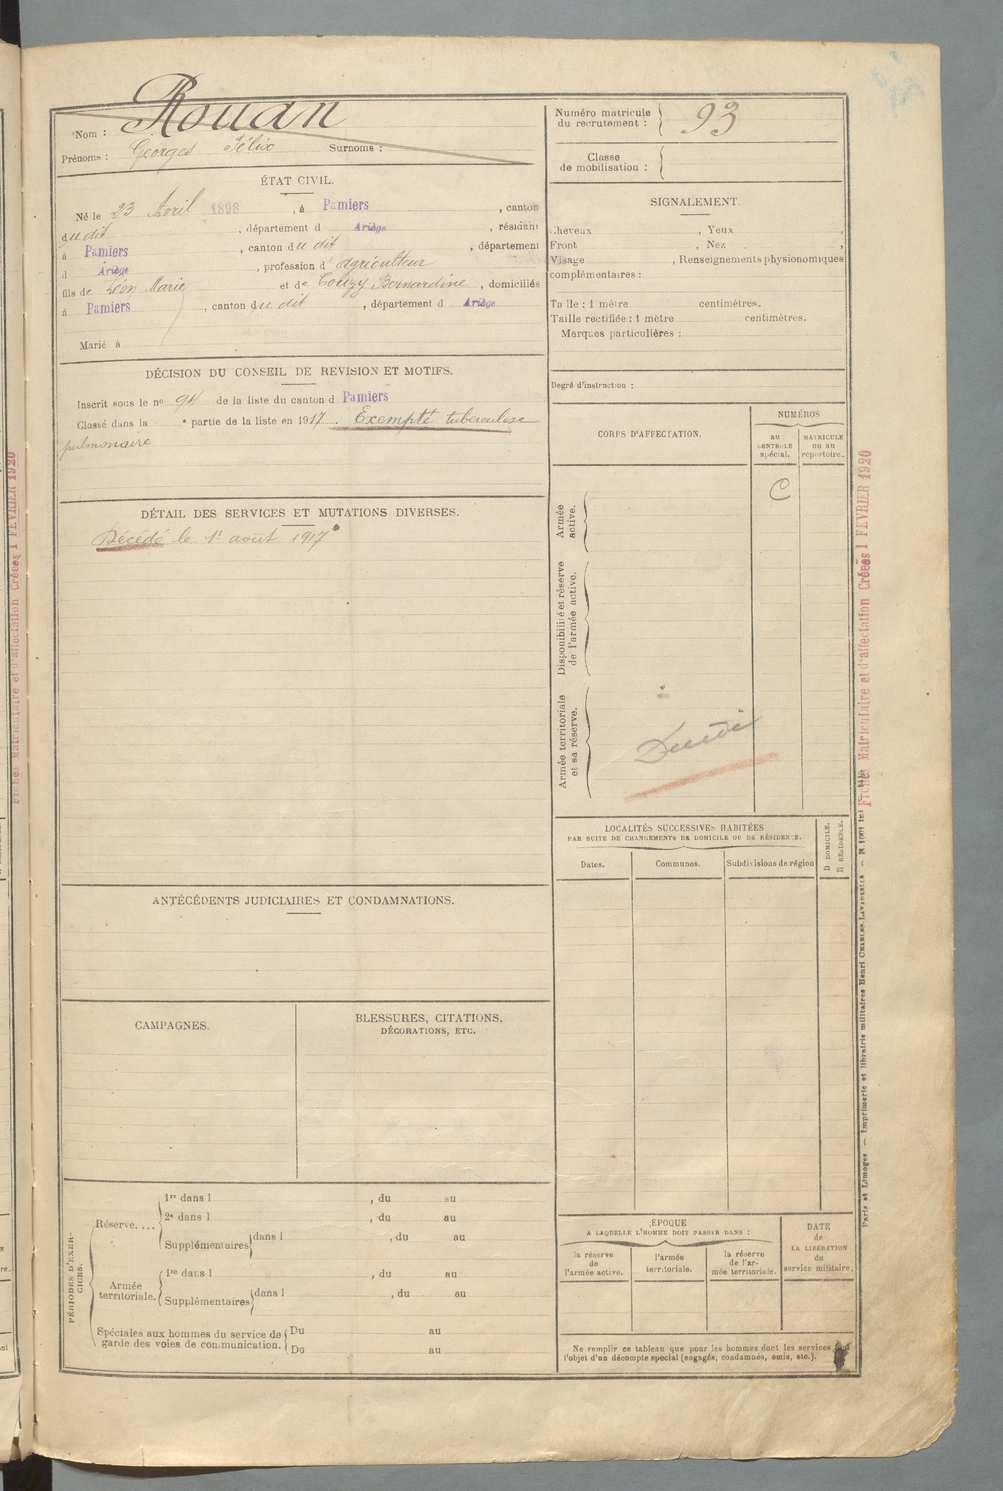 Nom : Rouan
Prénoms : Georges Félix Surnoms :
ÉTAT CIVIL.
Né le 23 Avril 1898, à Pamiers, canton
du dit, département d Ariège, résidant
à Pamiers, canton du dit, département
d Ariège, profession d'agriculteur
fils de Léon Marie et de Couzy Bernardine, domiciliés
à Pamiers, canton du dit, département d Ariège
Marié à
DÉCISION DU CONSEIL DE REVISION ET MOTIFS.
Inscrit sous le nº 94 de la liste du canton d Pamiers
Classé dans la e partie de la liste en 1917. Exempté tuberculose
pulmonaire
DÉTAIL DES SERVICES ET MUTATIONS DIVERSES.
Décédé le 1r août 1917
ANTÉCÉDENTS JUDICIAIRES ET CONDAMNATIONS.
CAMPAGNES.
BLESSURES, CITATIONS,
DÉCORATIONS, ETC.
PÉRIODES D'EXERCICES.
Réserve....
1re dans l , du au
2e dans l , du au
Supplémentaires dans l , du au
Armée
territoriale.
1re dans l , du au
Supplémentaires dans l , du au
Spéciales aux hommes du service de
garde des voies de communication.
Du au
Du au
Numéro matricule
du recrutement : 93
Classe
de mobilisation :
SIGNALEMENT.
Cheveux , Yeux ,
Front , Nez ,
Visage , Renseignements physionomiques
complémentaires :
Taille : 1 mètre centimètres.
Taille rectifiée : 1 mètre centimètres.
Marques particulières :
Degré d'instruction :
CORPS D'AFFECTATION.
NUMÉROS
au
CONTROLE
spécial.
MATRICULE
ou au
répertoire.
Armée
active.
C
Disponibilité et réserve
de l'armée active.
Armée territoriale
et sa réserve.
LOCALITÉS SUCCESSIVES HABITÉES
PAR SUITE DE CHANGEMENTS DE DOMICILE OU DE RÉSIDENCE.
D DOMICILE.
R RÉSIDENCE.
Dates. Communes. Subdivisions de région
ÉPOQUE
A LAQUELLE L'HOMME DOIT PASSER DANS :
la réserve
de
l'armée active.
l'armée
territoriale.
la réserve
de l'ar-
mée territoriale.
DATE
de
LA LIBÉRATION
du
service militaire.
Ne remplir ce tableau que pour les hommes dont les services font
l'objet d'un décompte spécial (engagés, condamnés, omis, etc.).
Fiches Matriculaire et d'affectation Créées 1 FEVRIER 1920
Fiches Matriculaire et d'affectation Créées 1 FEVRIER 1920
Paris et Limoges — Imprimerie et librairie militaires Henri CHARLES-LAVAUZELLE